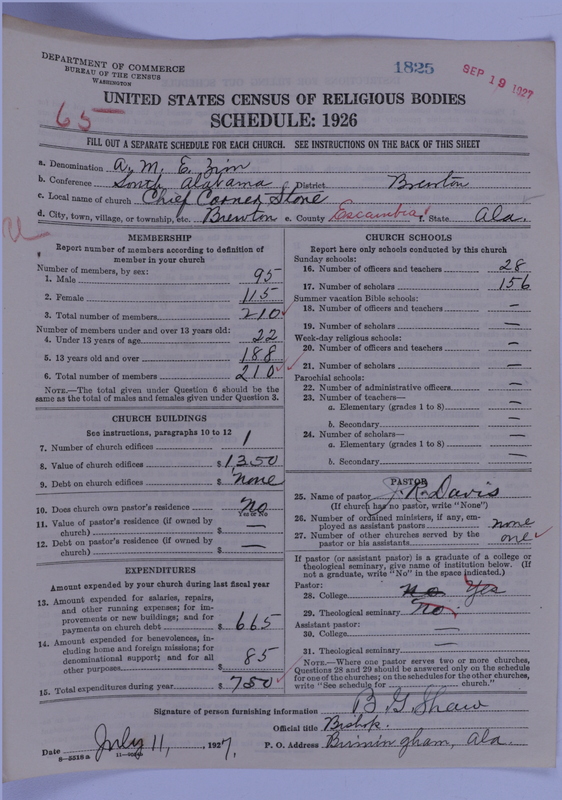 DEPARTMENT OF COMMERCE
BUREAU OF THE CENSUS
WASHINGTON
1825
SEP 19 1927
65
UNITED STATES CENSUS OF RELIGIOUS BODIES
SCHEDULE: 1926
FILL OUT A SEPARATE SCHEDULE FOR EACH CHURCH. SEE INSTRUCTIONS ON THE BACK OF THIS SHEET
a. Denomination A. M. E. Zion
b. Conference South Alabama District Brewton
c. Local name of church Chief Corner Stone
d. City, town, village, or township, etc. Brewton e. County Escambia f. State Ala.
MEMBERSHIP
Report number of members according to definition of
member in your church
Number of members, by sex:
1. Male 95
2. Female 115
3. Total number of members 210
Number of members under and over 13 years old:
4. Under 13 years of age 22
5. 13 years old and over 188
6. Total number of members 210
NOTE.—The total given under Question 6 should be the
same as the total of males and females given under Question 3.
CHURCH BUILDINGS
See instructions, paragraphs 10 to 12
7. Number of church edifices 1
8. Value of church edifices $ 1350
9. Debt on church edifices $ none
10. Does church own pastor's residence No
Yes or No
11. Value of pastor's residence (if owned by
church) $ —
12. Debt on pastor's residence (if owned by
church) $ —
EXPENDITURES
Amount expended by your church during last fiscal year
13. Amount expended for salaries, repairs,
and other running expenses; for im-
provements or new buildings; and for
payments on church debt $ 665
14. Amount expended for benevolences, in-
cluding home and foreign missions; for
denominational support; and for all
other purposes $ 85
15. Total expenditures during year $ 750
CHURCH SCHOOLS
Report here only schools conducted by this church
Sunday schools:
16. Number of officers and teachers 28
17. Number of scholars 156
Summer vacation Bible schools:
18. Number of officers and teachers —
19. Number of scholars —
Week-day religious schools:
20. Number of officers and teachers —
21. Number of scholars —
Parochial schools:
22. Number of administrative officers —
23. Number of teachers—
a. Elementary (grades 1 to 8) —
b. Secondary —
24. Number of scholars—
a. Elementary (grades 1 to 8) —
b. Secondary —
PASTOR
25. Name of pastor J. R. Davis
(If church has no pastor, write "None")
26. Number of ordained ministers, if any, em-
ployed as assistant pastors none
27. Number of other churches served by the
pastor or his assistants one
If pastor (or assistant pastor) is a graduate of a college or
theological seminary, give name of institution below. (If
not a graduate, write "No" in the space indicated.)
Pastor:
28. College no Yes
29. Theological seminary No
Assistant pastor:
30. College —
31. Theological seminary —
NOTE.—Where one pastor serves two or more churches,
Questions 28 and 29 should be answered only on the schedule
for one of the churches; on the schedules for the other churches,
write "See schedule for church."
Signature of person furnishing information B G Shaw
Official title Bishop
Date July 11, 1927. P. O. Address Birmingham, Ala.
8-5518a